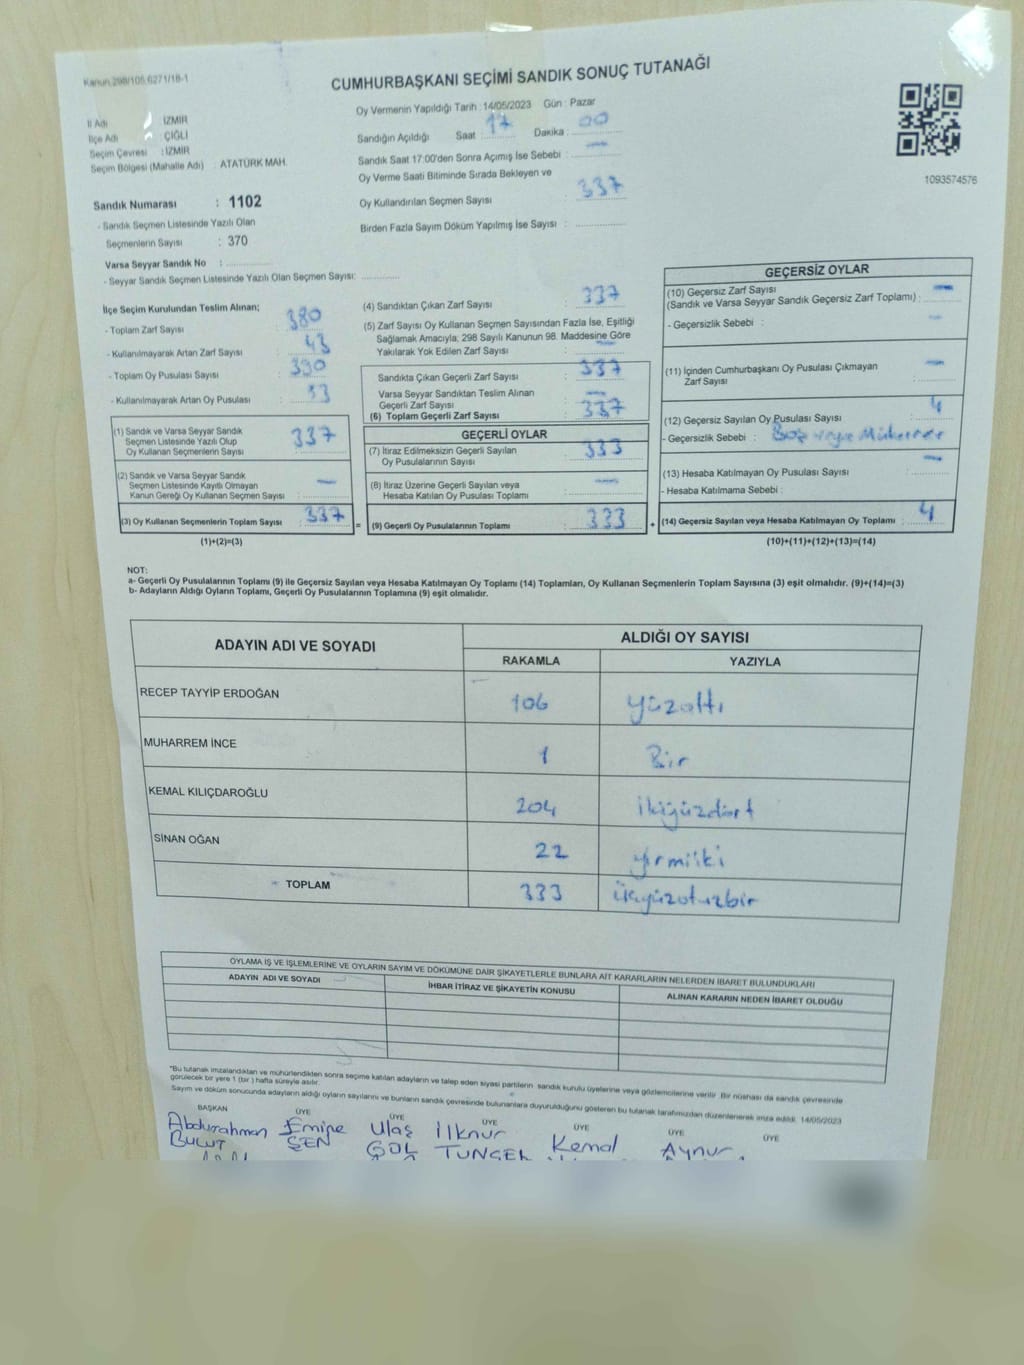 Kanun 298/105,6271/18-1
CUMHURBAŞKANI SEÇİMİ SANDIK SONUÇ TUTANAĞI
İl Adı : İZMİR
İlçe Adı : ÇİĞLİ
Seçim Çevresi : İZMİR
Seçim Bölgesi (Mahalle Adı) : ATATÜRK MAH.
Sandık Numarası : 1102
- Sandık Seçmen Listesinde Yazılı Olan
Seçmenlerin Sayısı : 370
Varsa Seyyar Sandık No :
- Seyyar Sandık Seçmen Listesinde Yazılı Olan Seçmen Sayısı:
Oy Vermenin Yapıldığı Tarih : 14/05/2023 Gün : Pazar
Sandığın Açıldığı Saat : 17 Dakika : 00
Sandık Saat 17:00'den Sonra Açımış İse Sebebi : —
Oy Verme Saati Bitiminde Sırada Bekleyen ve
Oy Kullandırılan Seçmen Sayısı : 337
Birden Fazla Sayım Döküm Yapılmış İse Sayısı :
1093574576
İlçe Seçim Kurulundan Teslim Alınan;
- Toplam Zarf Sayısı : 380
- Kullanılmayarak Artan Zarf Sayısı : 43
- Toplam Oy Pusulası Sayısı :
- Kullanılmayarak Artan Oy Pusulası :
(1) Sandık ve Varsa Seyyar Sandık
Seçmen Listesinde Yazılı Olup
Oy Kullanan Seçmenlerin Sayısı : 337
(2) Sandık ve Varsa Seyyar Sandık
Seçmen Listesinde Kayıtlı Olmayan
Kanun Gereği Oy Kullanan Seçmen Sayısı : —
(3) Oy Kullanan Seçmenlerin Toplam Sayısı : 337 =
(1)+(2)=(3)
(4) Sandıktan Çıkan Zarf Sayısı : 337
(5) Zarf Sayısı Oy Kullanan Seçmen Sayısından Fazla İse, Eşitliği
Sağlamak Amacıyla; 298 Sayılı Kanunun 98. Maddesine Göre
Yakılarak Yok Edilen Zarf Sayısı : —
Sandıkta Çıkan Geçerli Zarf Sayısı : 337
Varsa Seyyar Sandıktan Teslim Alınan
Geçerli Zarf Sayısı : —
(6) Toplam Geçerli Zarf Sayısı : 337
GEÇERLİ OYLAR
(7) İtiraz Edilmeksizin Geçerli Sayılan
Oy Pusulalarının Sayısı : 333
(8) İtiraz Üzerine Geçerli Sayılan veya
Hesaba Katılan Oy Pusulası Toplamı : —
(9) Geçerli Oy Pusulalarının Toplamı : 333 +
GEÇERSİZ OYLAR
(10) Geçersiz Zarf Sayısı
(Sandık ve Varsa Seyyar Sandık Geçersiz Zarf Toplamı) : —
- Geçersizlik Sebebi : —
(11) İçinden Cumhurbaşkanı Oy Pusulası Çıkmayan
Zarf Sayısı : —
(12) Geçersiz Sayılan Oy Pusulası Sayısı : 4
- Geçersizlik Sebebi : Boş veya
(13) Hesaba Katılmayan Oy Pusulası Sayısı : —
- Hesaba Katılmama Sebebi :
(14) Geçersiz Sayılan veya Hesaba Katılmayan Oy Toplamı : 4
(10)+(11)+(12)+(13)=(14)
NOT:
a- Geçerli Oy Pusulalarının Toplamı (9) ile Geçersiz Sayılan veya Hesaba Katılmayan Oy Toplamı (14) Toplamları, Oy Kullanan Seçmenlerin Toplam Sayısına (3) eşit olmalıdır. (9)+(14)=(3)
b- Adayların Aldığı Oyların Toplamı, Geçerli Oy Pusulalarının Toplamına (9) eşit olmalıdır.
ADAYIN ADI VE SOYADI ALDIĞI OY SAYISI
RAKAMLA YAZIYLA
RECEP TAYYİP ERDOĞAN 106 yüzaltı
MUHARREM İNCE 1 Bir
KEMAL KILIÇDAROĞLU 204 ikiyüzdört
SİNAN OĞAN 22 yirmiiki
TOPLAM 333
OYLAMA İŞ VE İŞLEMLERİNE VE OYLARIN SAYIM VE DÖKÜMÜNE DAİR ŞİKAYETLERLE BUNLARA AİT KARARLARIN NELERDEN İBARET BULUNDUKLARI
ADAYIN ADI VE SOYADI İHBAR İTİRAZ VE ŞİKAYETİN KONUSU ALINAN KARARIN NEDEN İBARET OLDUĞU
*Bu tutanak imzalandıktan ve mühürlendikten sonra seçime katılan adayların ve talep eden siyasi partilerin sandık kurulu üyelerine veya gözlemcilerine verilir. Bir nüshası da sandık çevresinde
görülecek bir yere 1 (bir ) hafta süreyle asılır.
Sayım ve döküm sonucunda adayların aldığı oyların sayılarını ve bunların sandık çevresinde bulunanlara duyurulduğunu gösteren bu tutanak tarafımızdan düzenlenerek imza edildi. 14/05/2023
BAŞKAN ÜYE ÜYE ÜYE ÜYE ÜYE ÜYE
Abdurrahman Emine Ulaş İlknur Kemal Aynur
BULUT ŞEN GÜL